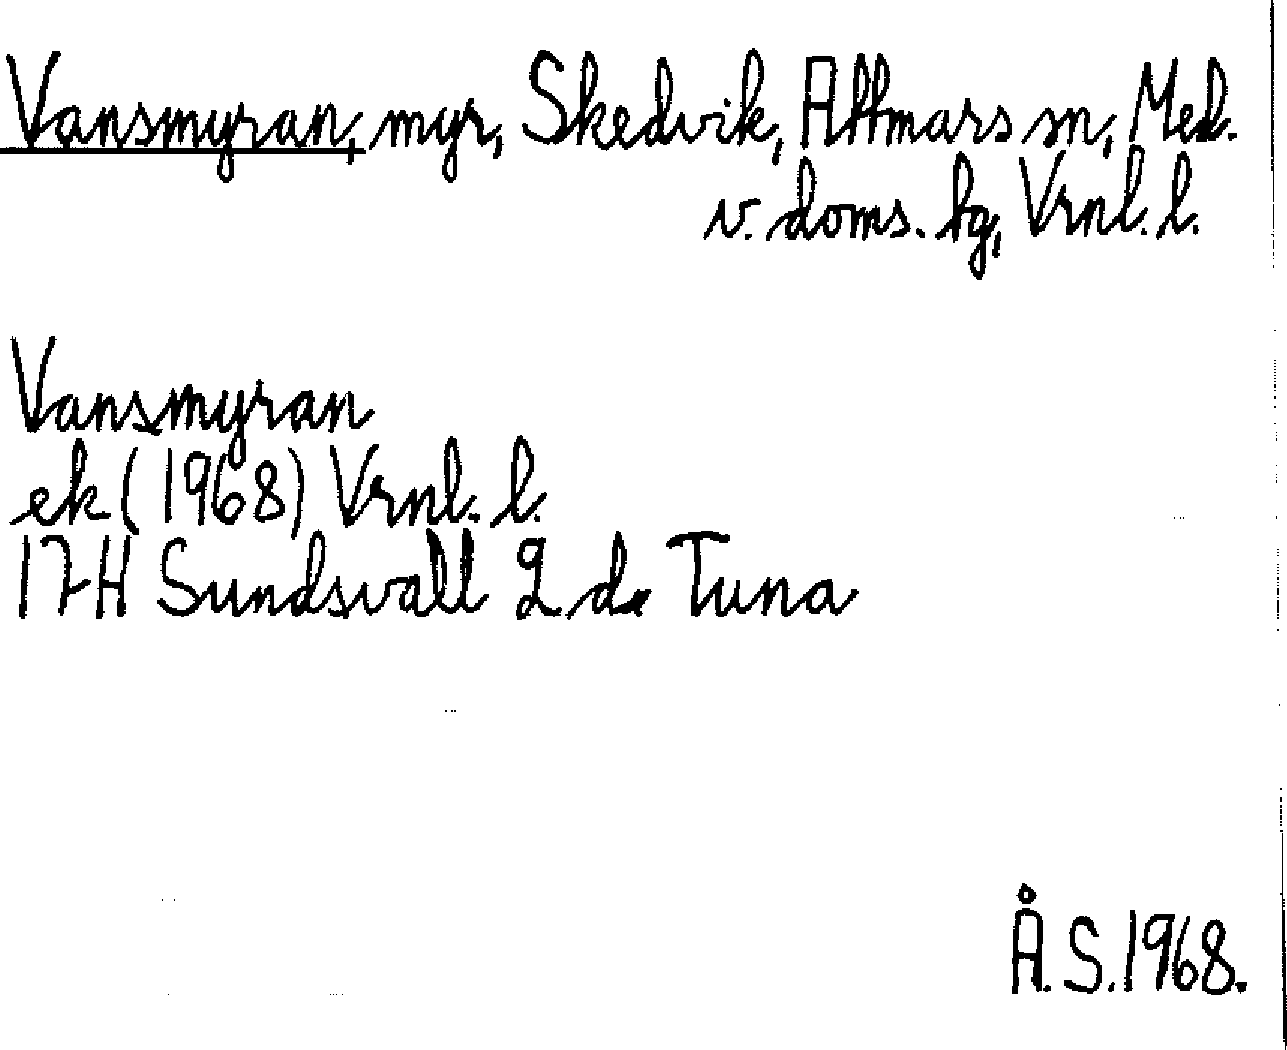 Vansmyran, myr, Skedvik, Attmars sn, Med.
v. doms. hg, Vrnl. l.
Vansmyran
ek (1968) Vrnl. l.
17H Sundsvall 2 d Tuna
Å.S. 1968.